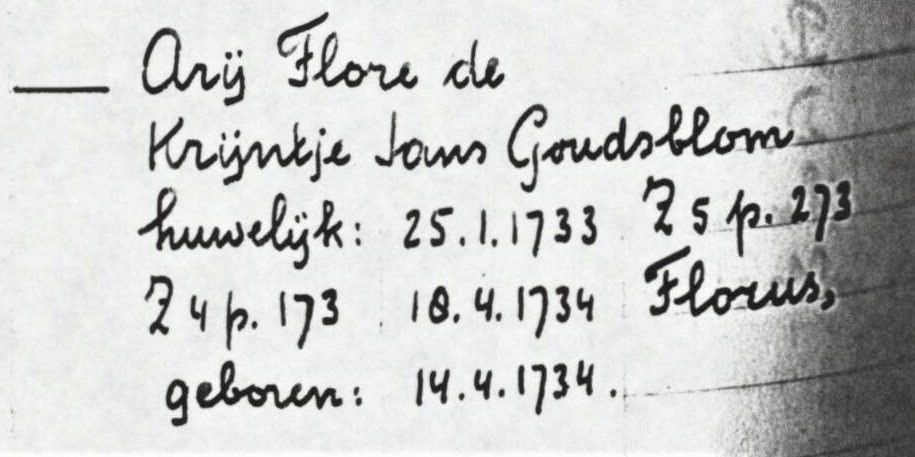 —— Arij Flore de
Krijntje Jans Goudsblom
huwelijk: 25.1.1733 Z 5 p. 273
Z 4 p. 173 18.4.1734 Florus,
geboren: 14.4.1734.